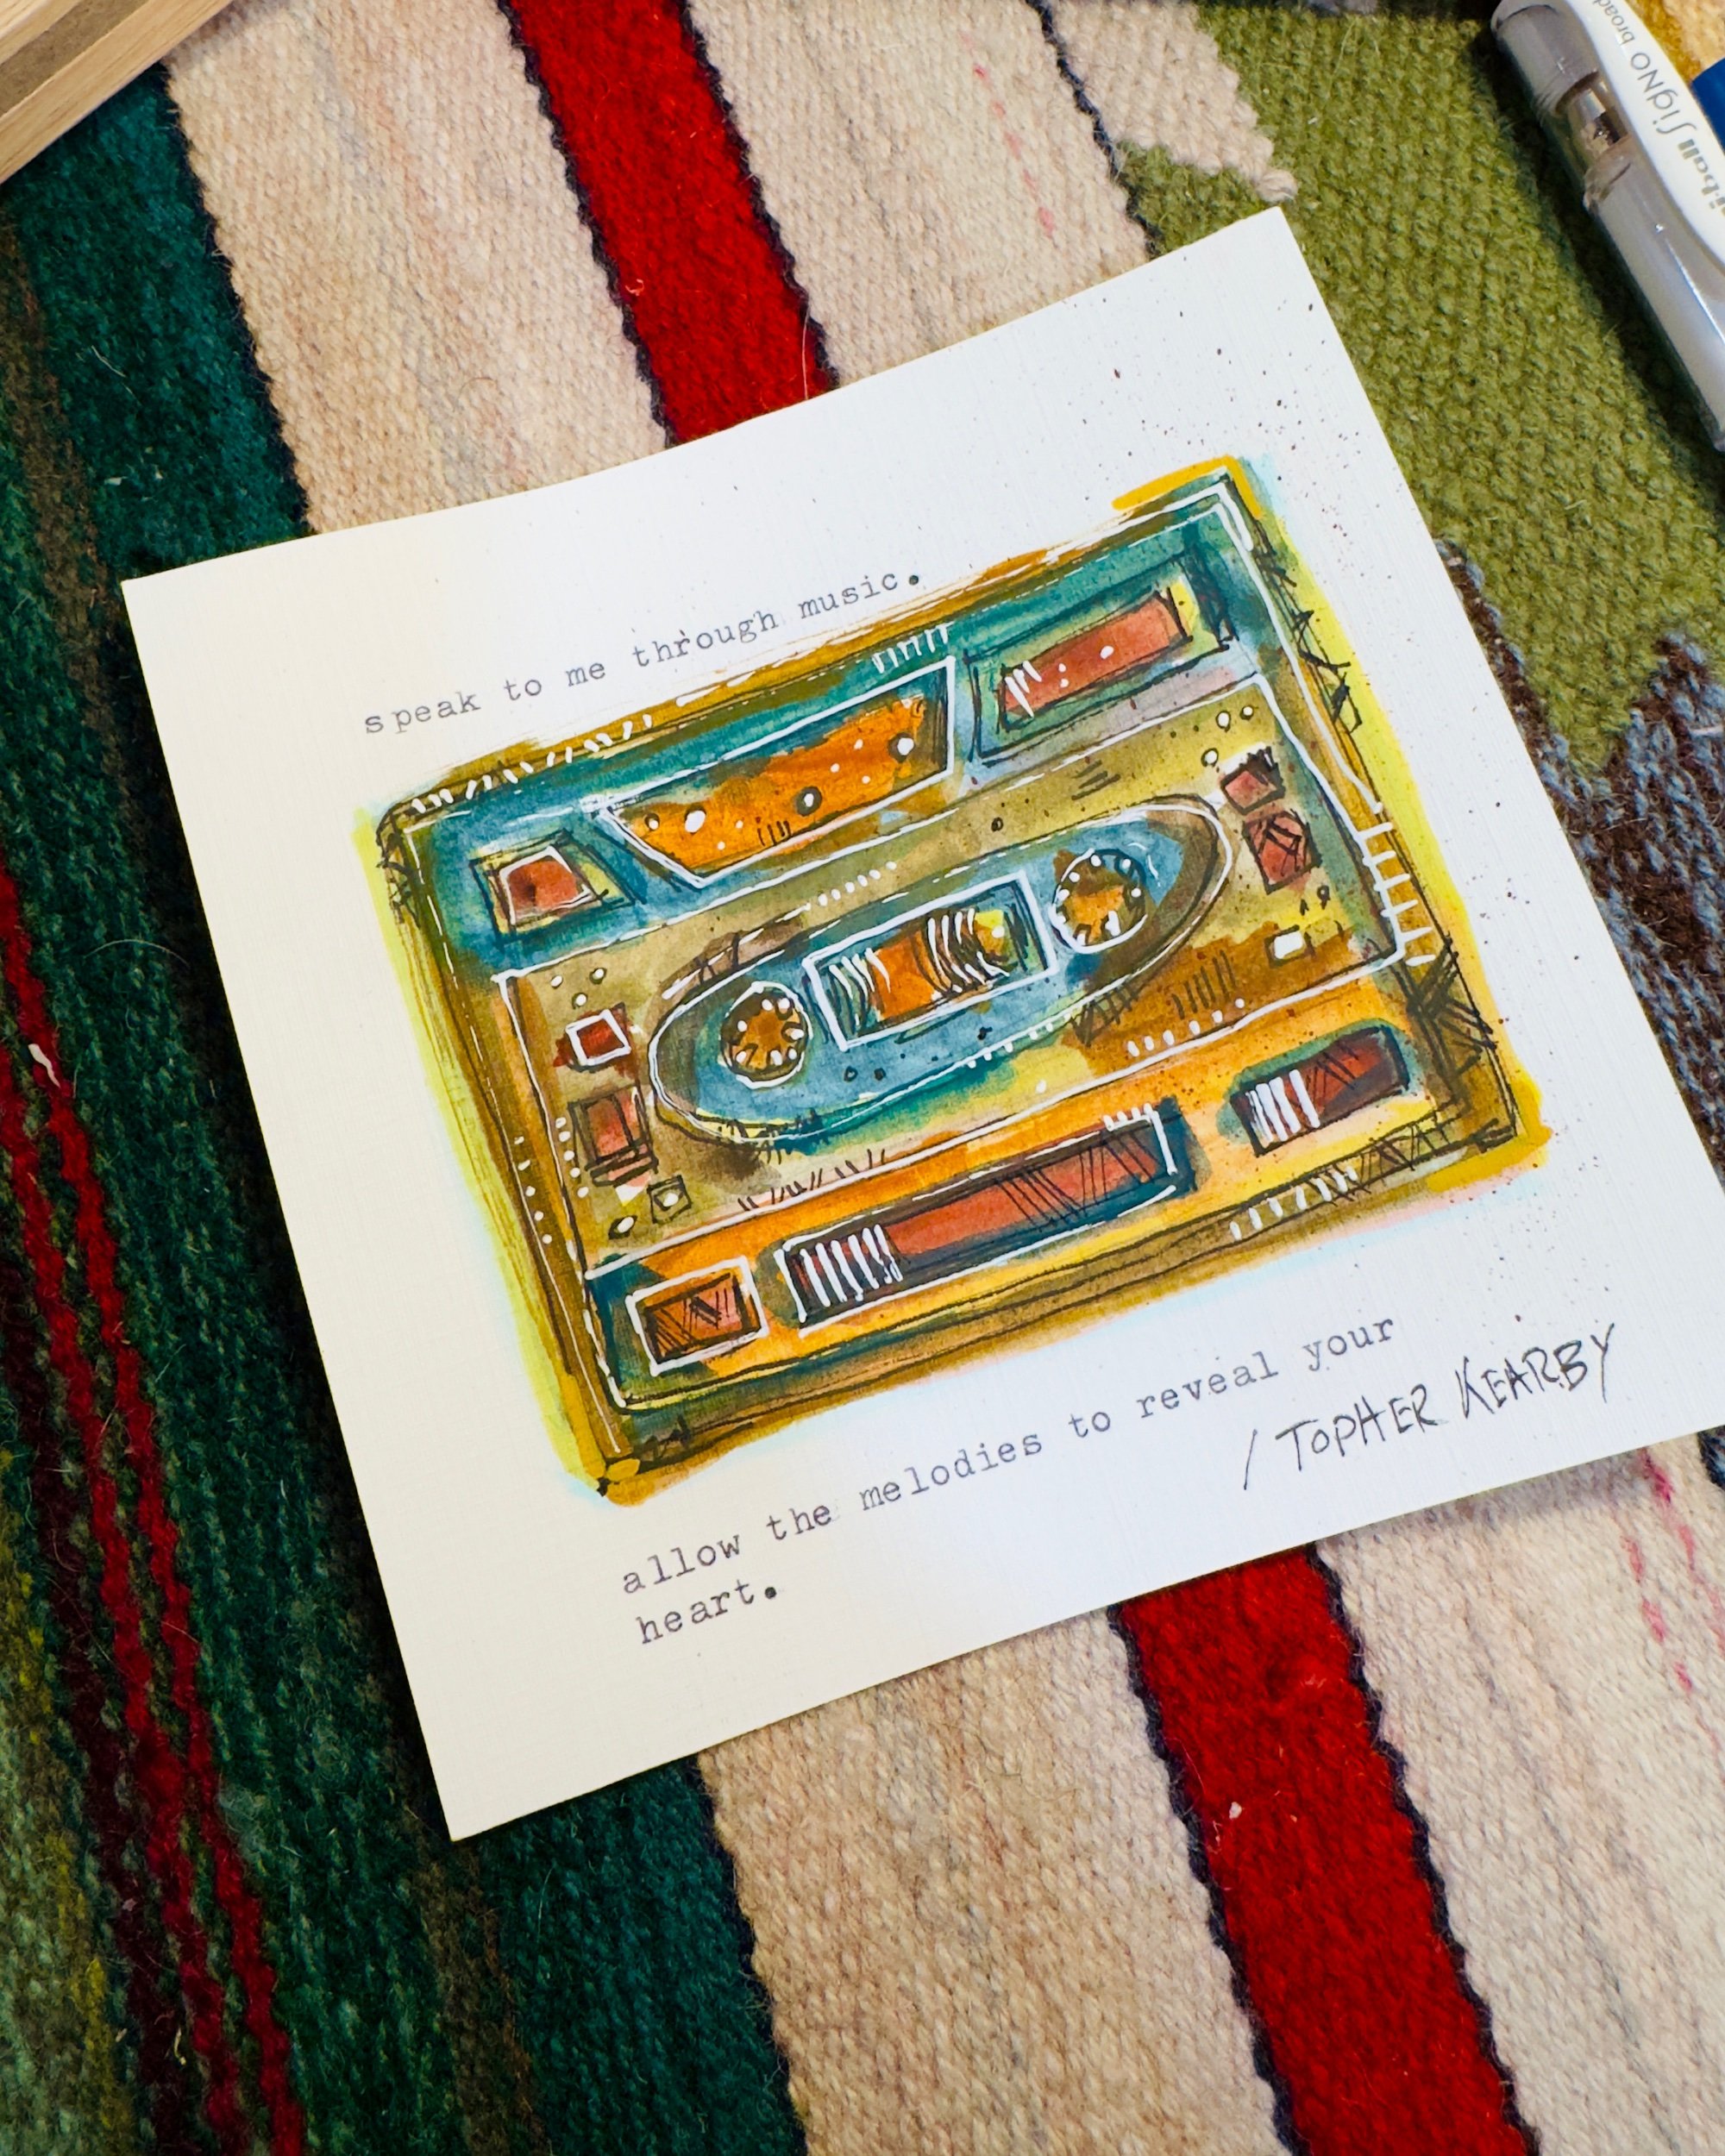 speak to me through music.
allow the melodies to reveal your
heart.
/ TOPHER KEARBY
uni-ball SigNO broad